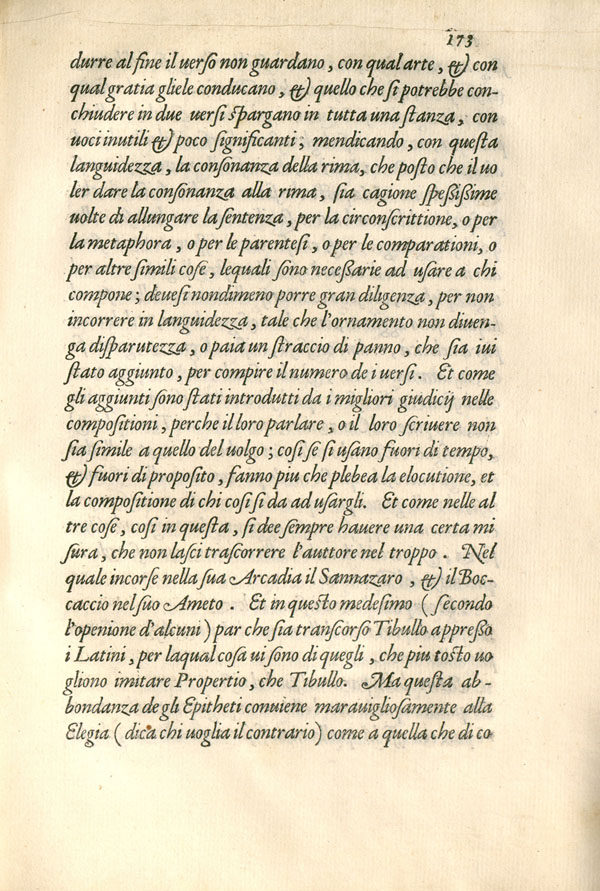 173
durre al fine il verso non guardano, con qual arte, & con
qual gratia gliele conducano, & quello che si potrebbe con-
chiudere in due uersi spargano in tutta una stanza, con
uoci inutili & poco significanti; mendicando, con questa
languidezza, la consonanza della rima, che posto che il uo
ler dare la consonanza alla rima, sia cagione speßißime
uolte di allungare la sentenza, per la circonscrittione, o per
la metaphora, o per le parentesi, o per le comparationi, o
per altre simili cose, lequali sono neceßarie ad usare a chi
compone; deuesi nondimeno porre gran diligenza, per non
incorrere in languidezza, tale che l'ornamento non diuen-
ga disparutezza, o paia un straccio di panno, che sia iui
stato aggiunto, per compire il numero de i uersi. Et come
gli aggiunti sono stati introdutti da i migliori giudicij nelle
compositioni, perche il loro parlare, o il loro scriuere non
sia simile a quello del uolgo; cosi se si usano fuori di tempo,
& fuori di proposito, fanno piu che plebea la elocutione, et
la compositione di chi cosi si da ad usargli. Et come nelle al
tre cose, cosi in questa, si dee sempre hauere una certa mi
sura, che non lasci trascorrere l'auttore nel troppo. Nel
quale incorse nella sua Arcadia il Sannazaro, & il Boc-
caccio nel suo Ameto. Et in questo medesimo (secondo
l'openione d'alcuni) par che sia transcorso Tibullo appreßo
i Latini, per laqual cosa ui sono di quegli, che piu tosto uo
gliono imitare Propertio, che Tibullo. Ma questa ab-
bondanza de gli Epitheti conuiene marauigliosamente alla
Elegia (dica chi uoglia il contrario) come a quella che di co